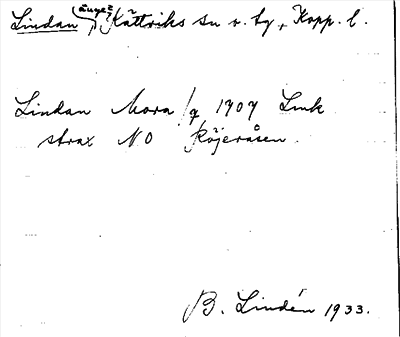 Lindan, (änge?) Rättviks sn v. by, Kopp. l.
Lindan Mora/g 1907 Link
strax NO Röjeråsen.
B. Lindén 1933.